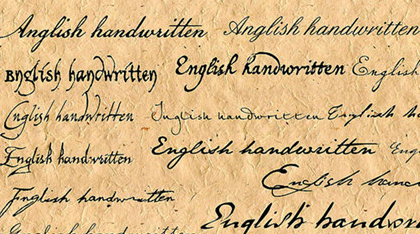 Anglish handwritten Anglish handwritten
English handwritten English handwritten English
English handwritten English handwritten English ha
English handwritten English handwritten Eng
English hand
English handwritten English handw
English handwritten